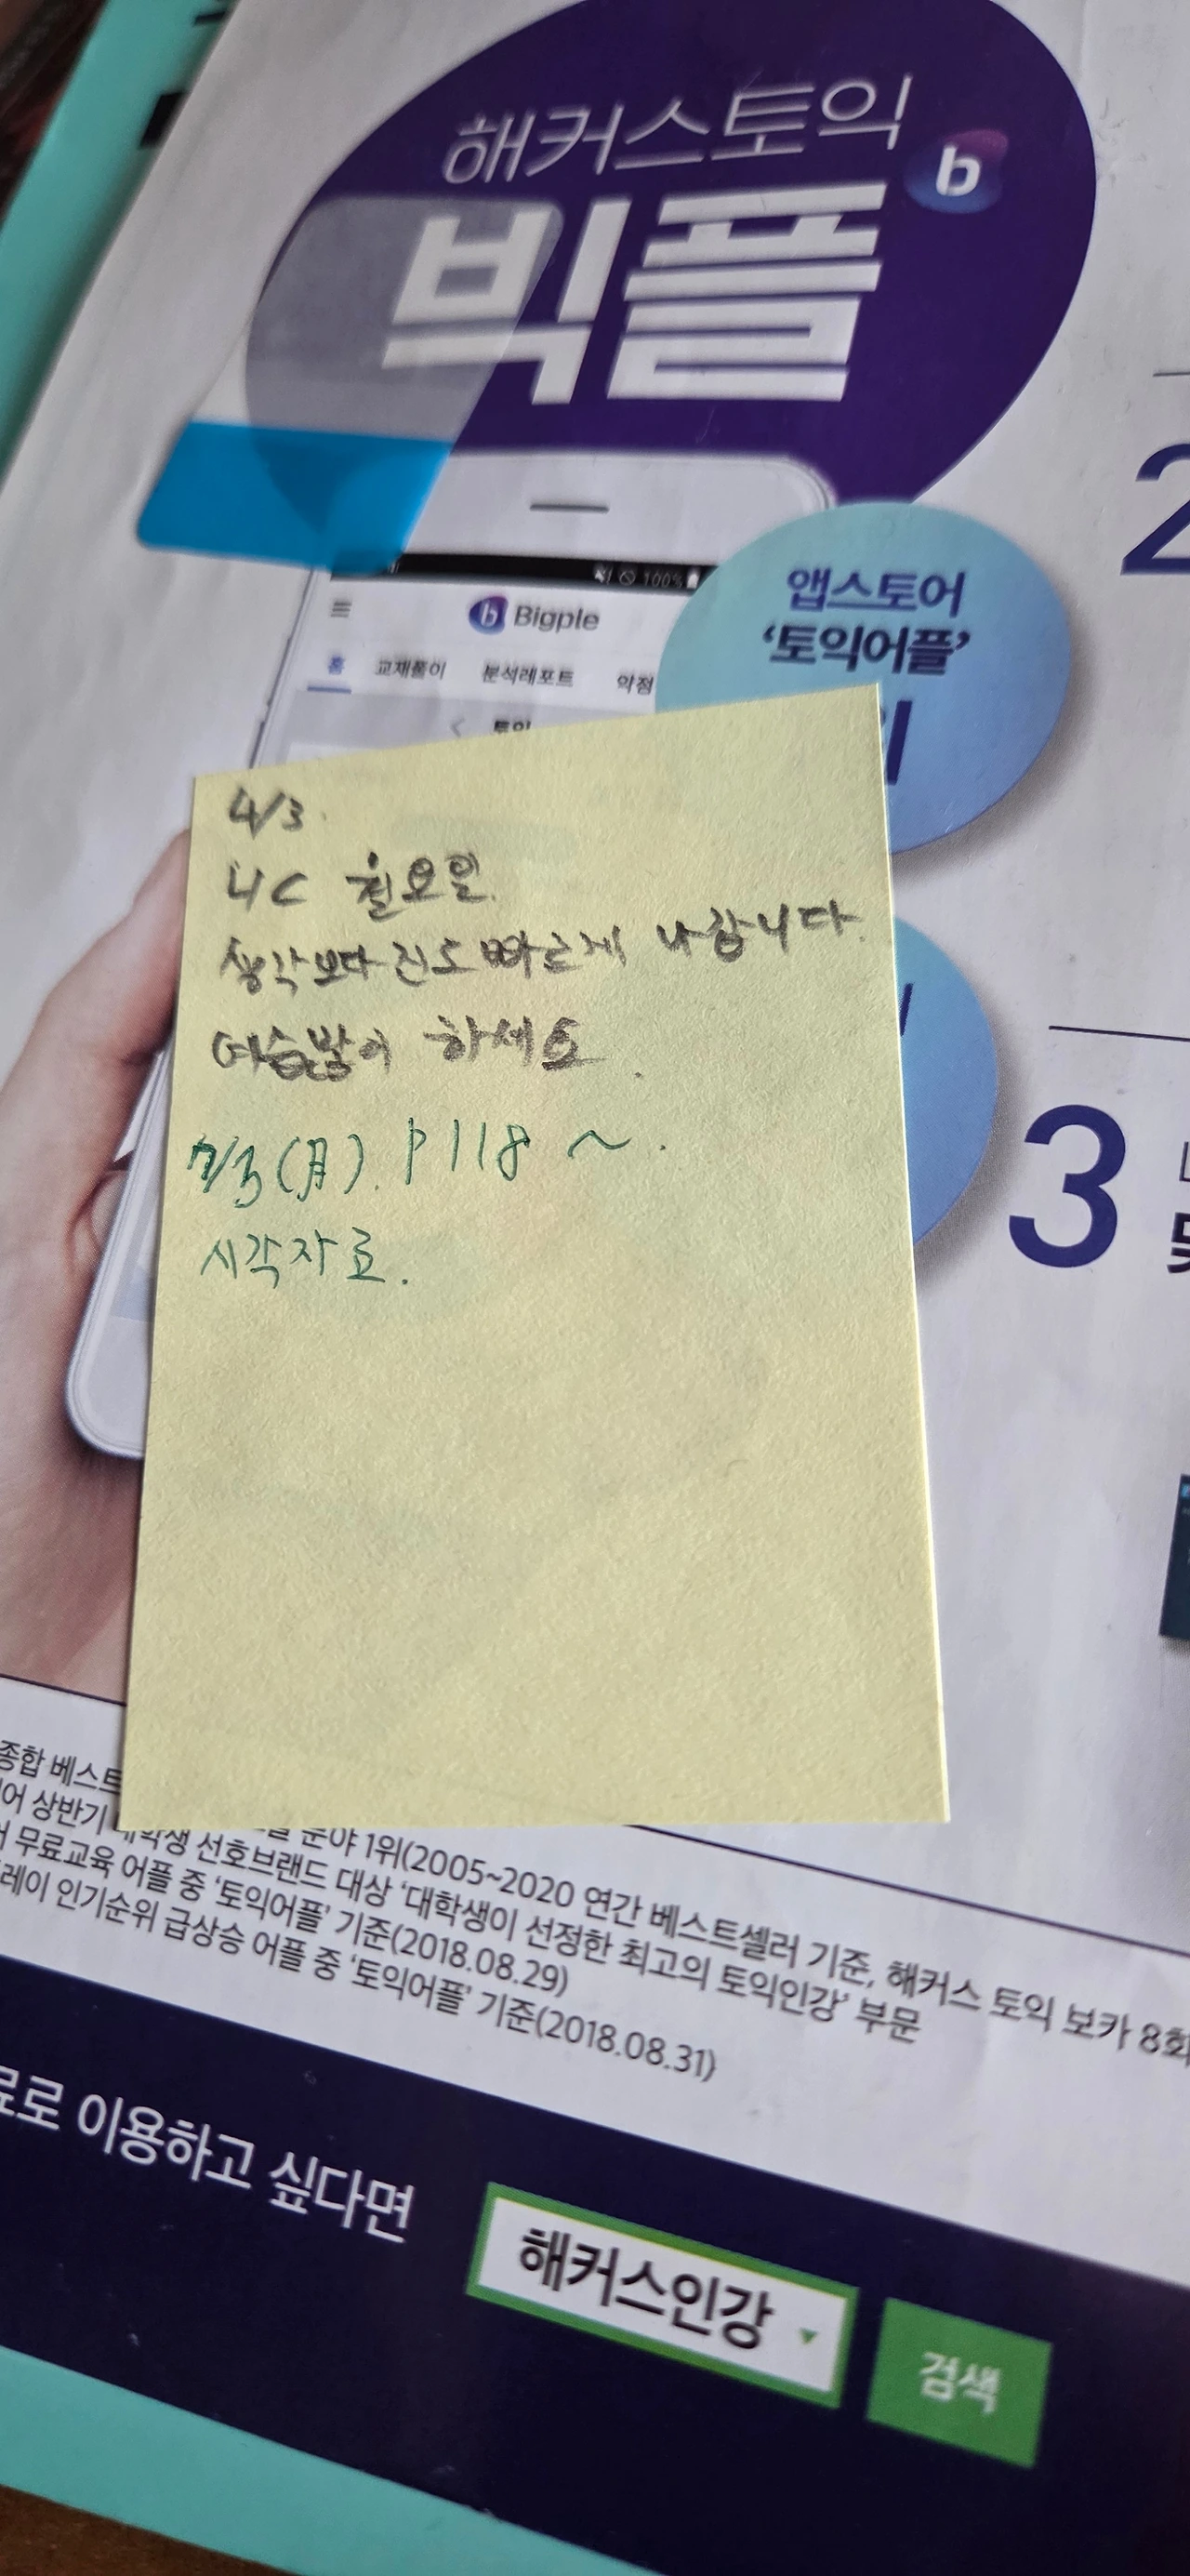 해커스토익
빅플
b
앱스토어
'토익어플'
100%
Bigple
홈 교재풀이 분석레포트 약점
토익
2
4/3.
LC 월요일.
생각보다 진도 빠르게 나갑니다.
예습많이 하세요.
7/3(月). P118~.
시각자료.
3
종합 베스트
분야 1위(2005~2020 연간 베스트셀러 기준, 해커스 토익 보카 8회
어 상반기 대학생 선호브랜드 대상 '대학생이 선정한 최고의 토익인강' 부문
무료교육 어플 중 '토익어플' 기준(2018.08.29)
레이 인기순위 급상승 어플 중 '토익어플' 기준(2018.08.31)
료로 이용하고 싶다면
해커스인강
검색